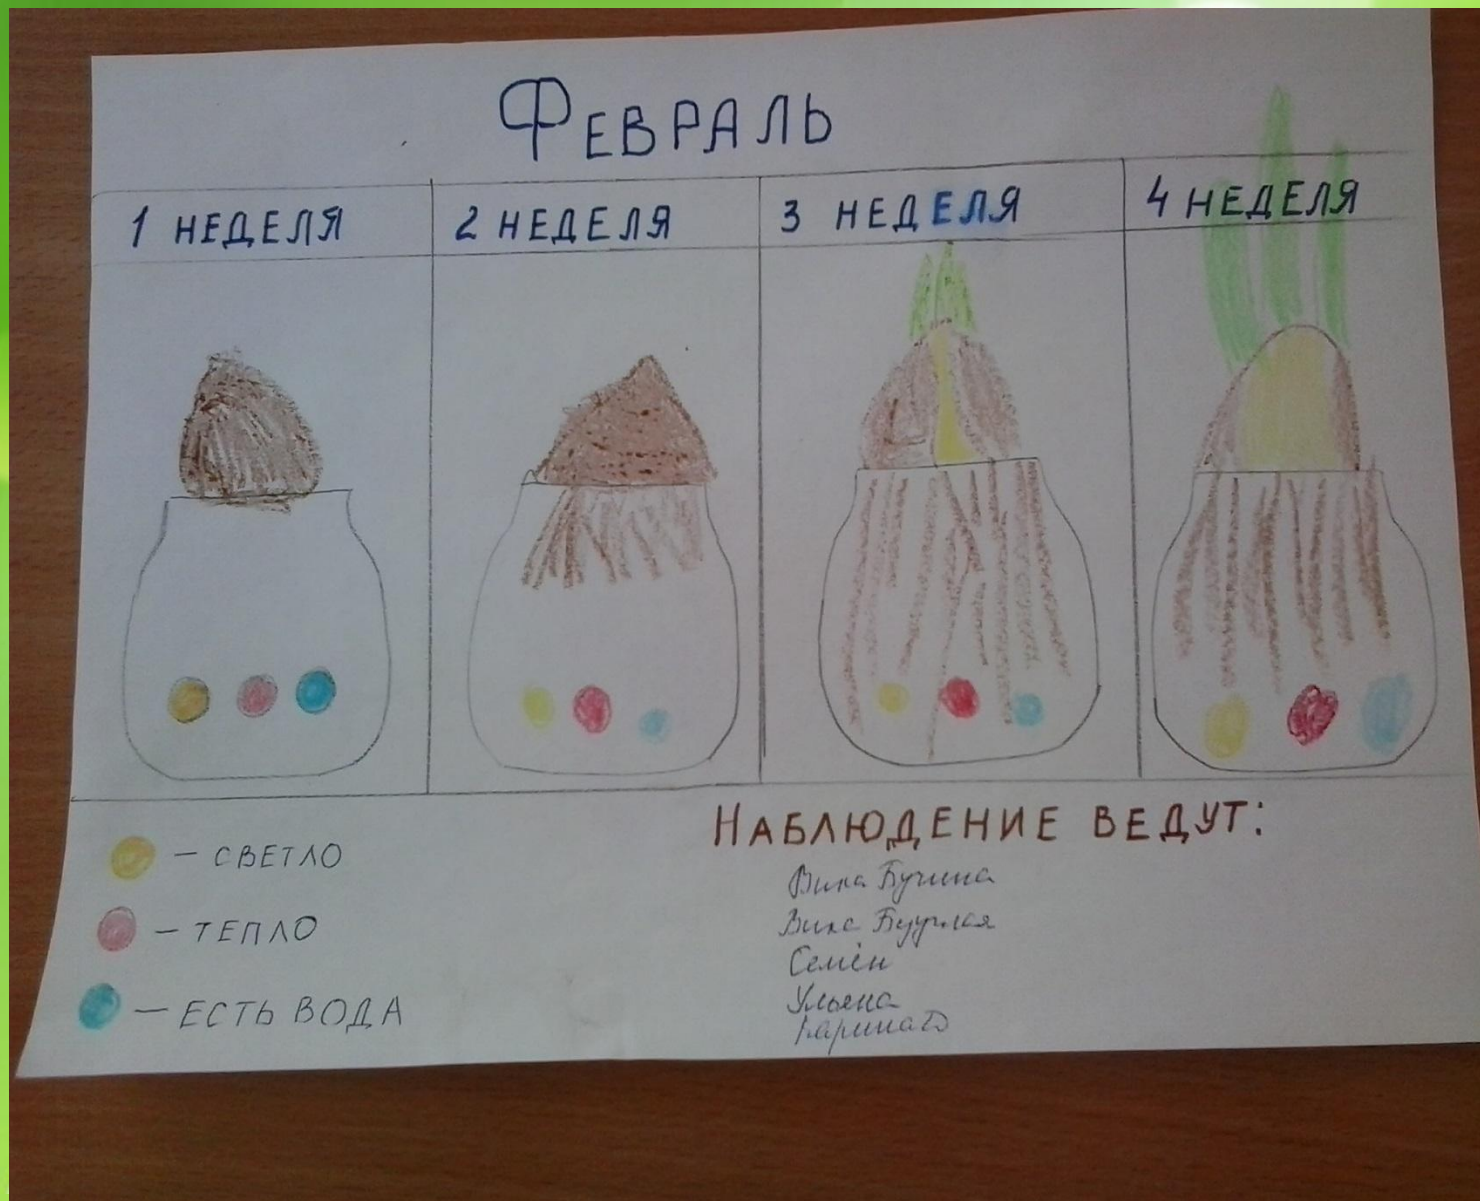 Февраль
1 неделя
2 неделя
3 неделя
4 неделя
— светло
— тепло
— есть вода
Наблюдение ведут:
Вика Бучина
Вика
Семён
Ульяна